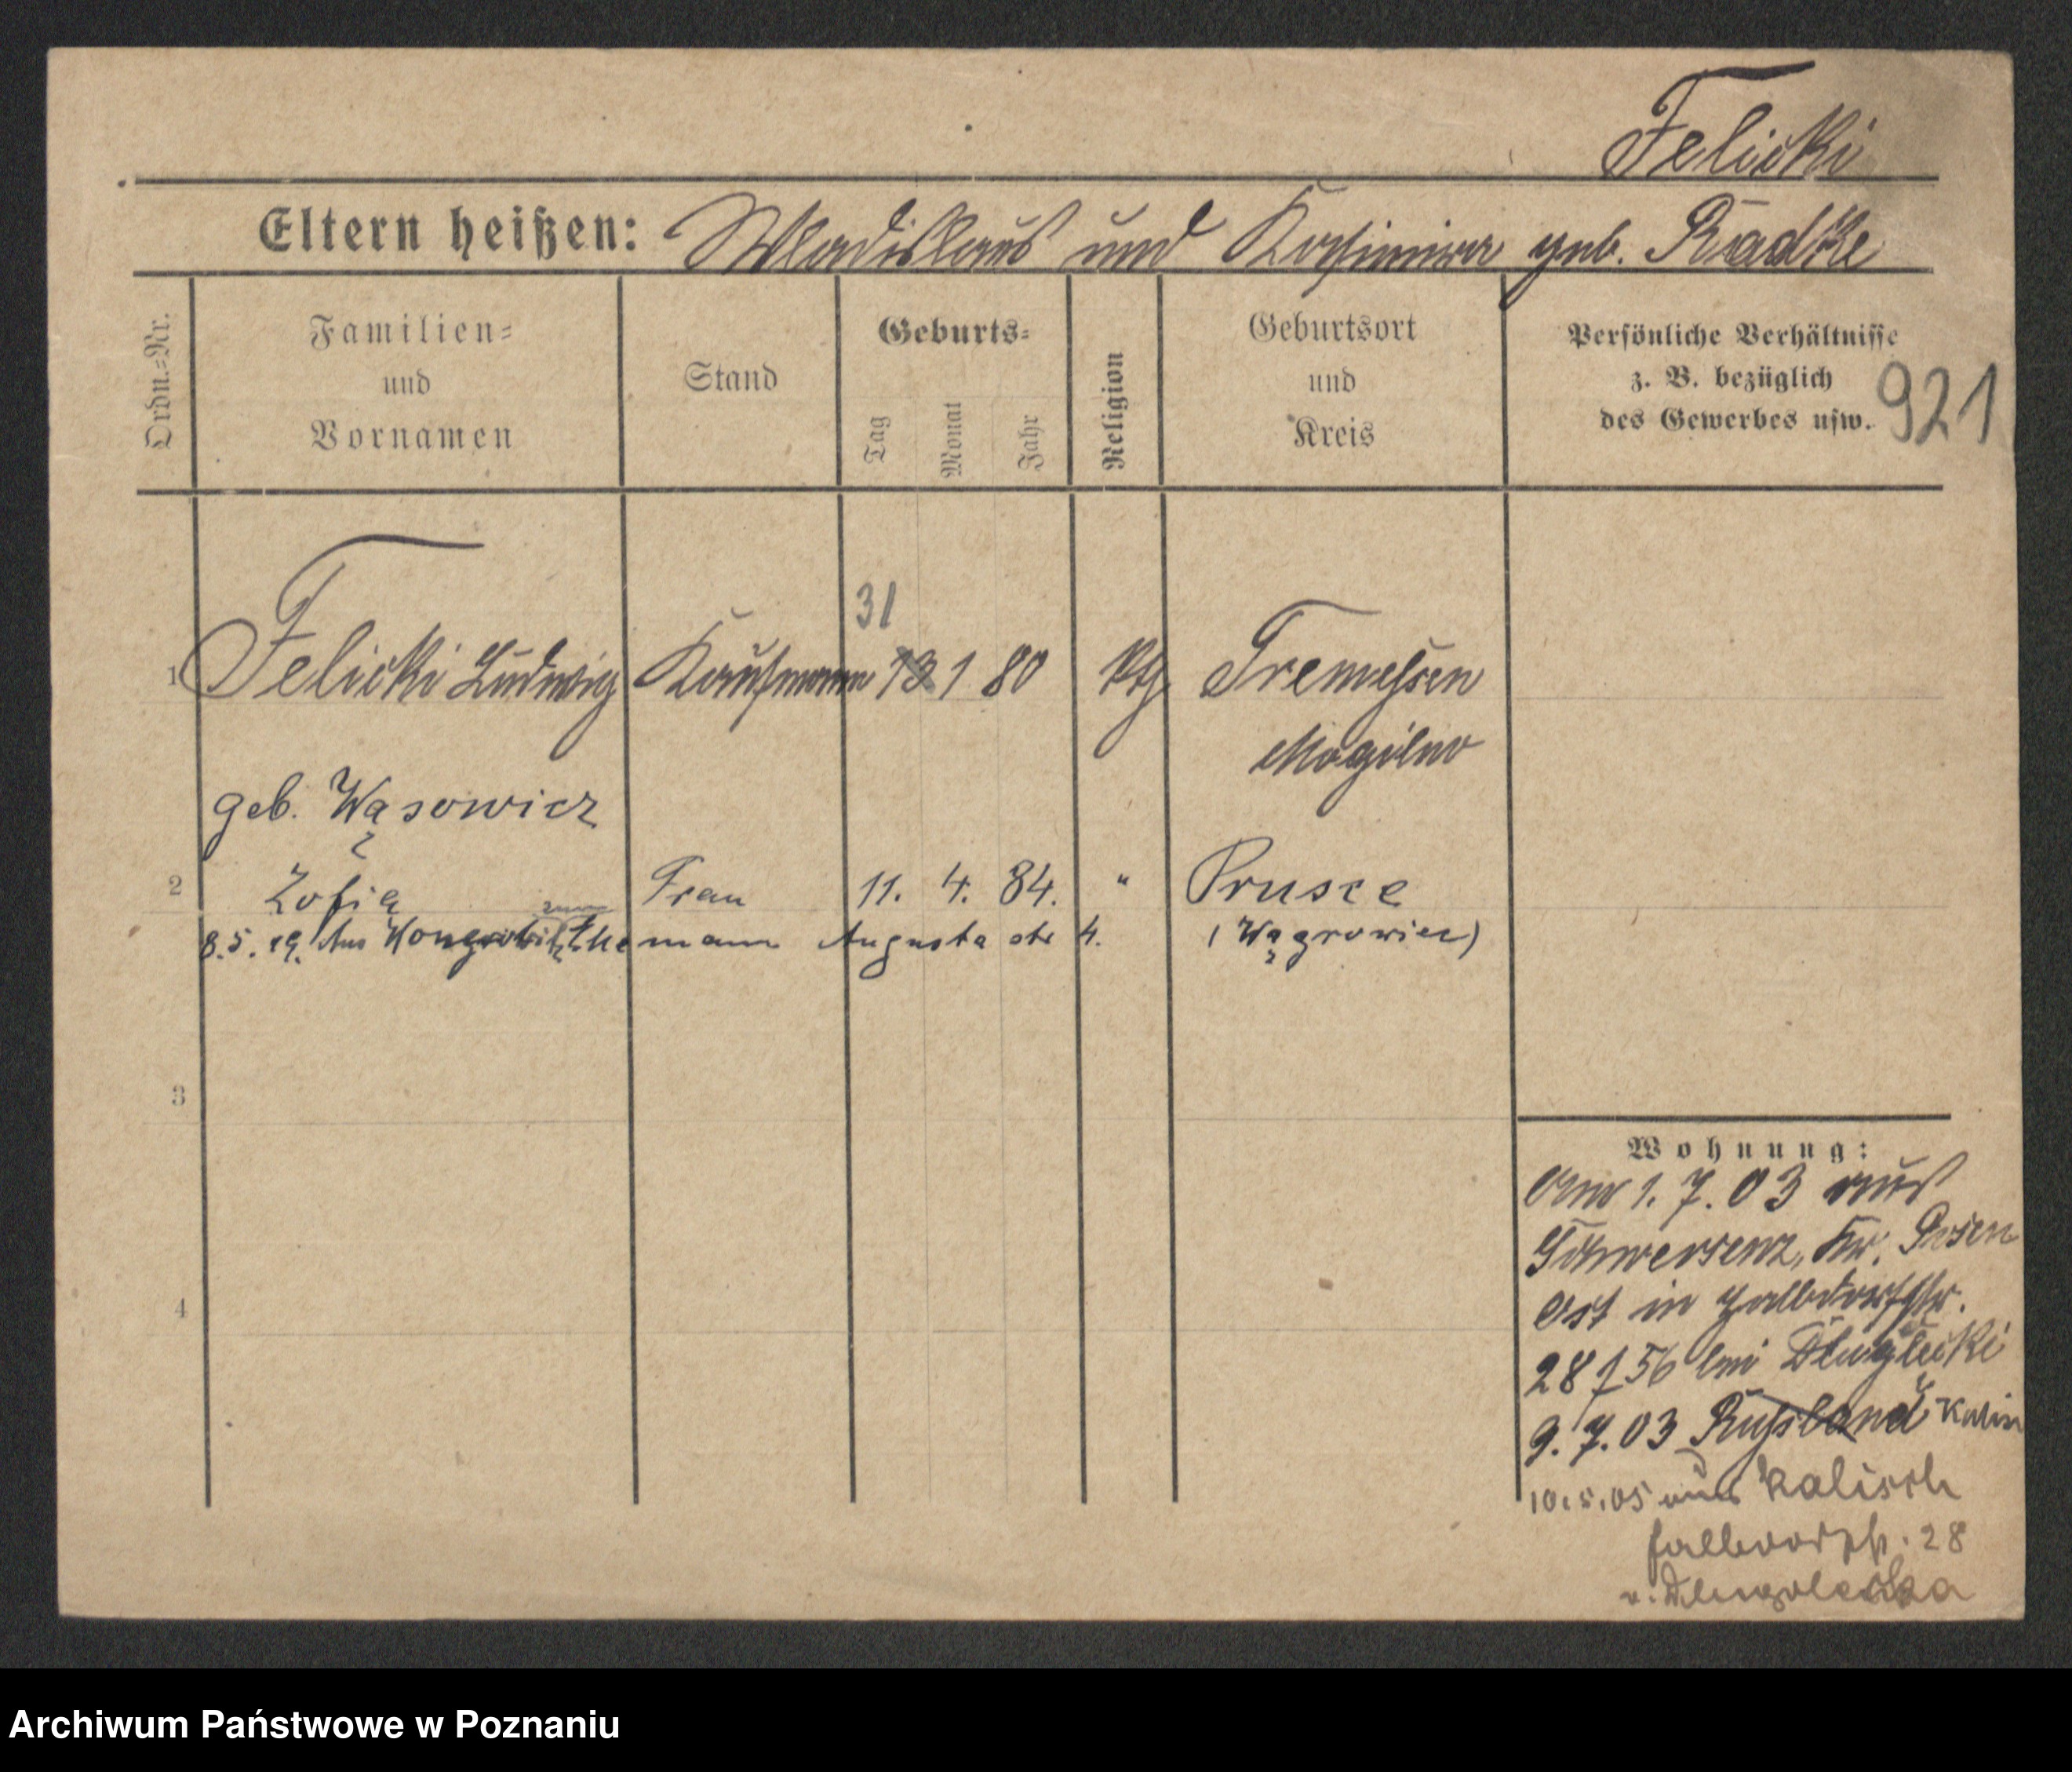 Felicki
Eltern heißen: Wladislaus und Kasimira geb. Radtke
Ordn.-Nr.
Familien- und Vornamen
Stand
Geburts-
Tag
Monat
Jahr
Religion
Geburtsort und Kreis
Persönliche Verhältnisse
z. B. bezüglich
des Gewerbes usw.
921
31
1 Felicki Ludwig Kaufmann 13 1 80 kth Tremessen
Mogilno
geb. Wąsowicz
2 Zofia Frau 11. 4. 84. " Prusce
8.5.19. Aus Wongrowitz zum Ehemann Augusta str 4. (Wągrowiec)
3
4
Wohnung:
Am 1.7.03 aus
Schwersenz, Kr. Posen
Ost in Halbdorfstr.
28 I 56 bei
9.7.03 Russland Kalisch
10.5.05 aus Kalisch
Halbdorfstr. 28
Archiwum Państwowe w Poznaniu